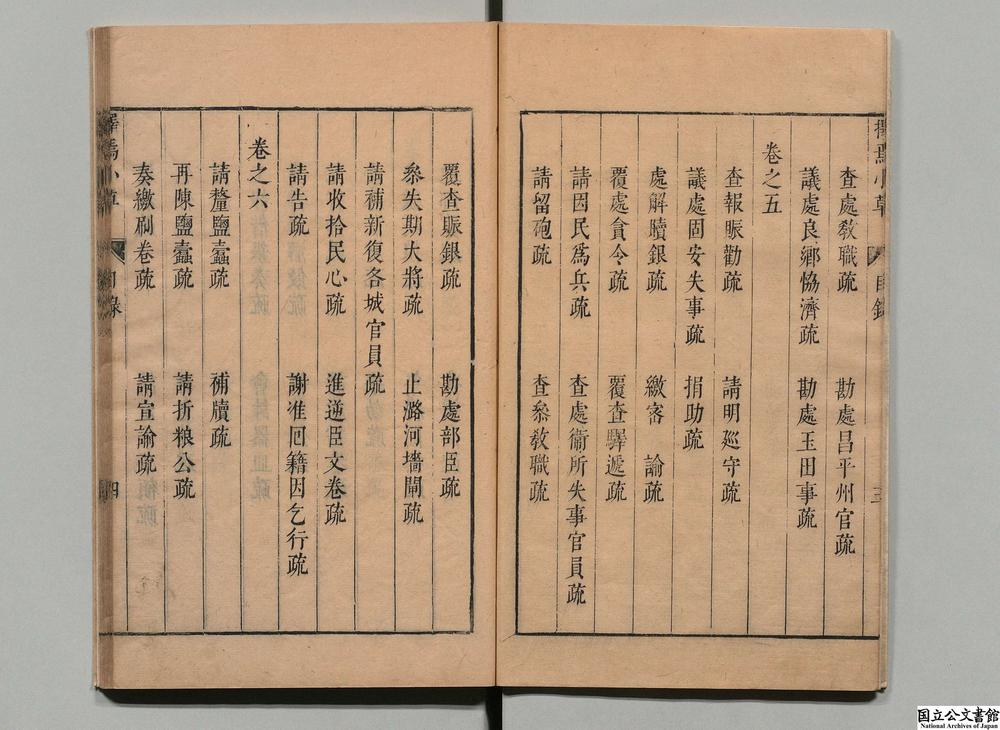 查處敎職疏　勘處昌平州官疏
議處良鄉恊濟疏　勘處玉田事疏
卷之五
查報賑勸疏　請明廵守疏
議處固安失事疏　捐助疏
處解贖銀疏　繳寄　諭疏
覆處貪令疏　覆查驛遞疏
請因民爲兵疏　查處衞所失事官員疏
請留砲疏　查叅敎職疏
覆查賑銀疏　勘處部臣疏
叅失期大將疏　止潞河墻閘疏
請補新復各城官員疏
請收拾民心疏　進逆臣文卷疏
請告疏　謝准回籍因乞行疏
卷之六
請釐鹽蠧疏　補牘疏
再陳鹽蠧疏　請折粮公疏
奏繳刷卷疏　請宣諭疏
小草　目錄　三
焉小草　目錄　四
国立公文書館
National Archives of Japan